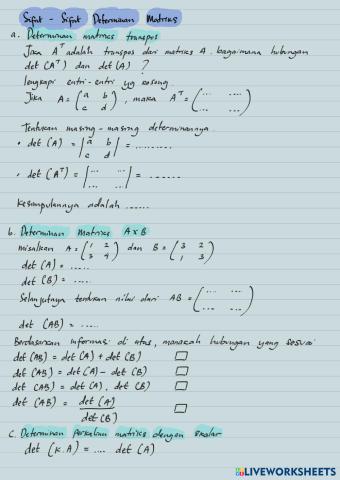 Sifat - Sifat Determinan Matriks
a. Determinan matriks transpos
Jika Aᵀ adalah transpos dari matriks A. bagaimana hubungan
det (Aᵀ) dan det (A) ?
lengkapi entri-entri yg kosong.
Jika A = (a b / c d), maka Aᵀ = (... ... / ... ...)
Tentukan masing-masing determinannya
• det (A) = |a b / c d| = .........
• det (Aᵀ) = |... ... / ... ...| = .........
Kesimpulannya adalah ......
b. Determinan Matriks A x B
misalkan A = (1 2 / 3 4) dan B = (3 2 / 1 3)
det (A) = .....
det (B) = .....
Selanjutnya tentukan nilai dari AB = (... ... / ... ...)
det (AB) = .....
Berdasarkan informasi di atas, manakah hubungan yang sesuai
det (AB) = det (A) + det (B)
det (AB) = det (A) - det (B)
det (AB) = det (A) . det (B)
det (AB) = det (A) / det (B)
c. Determinan Perkalian matriks dengan skalar
det (k.A) = .... det (A)
LIVEWORKSHEETS